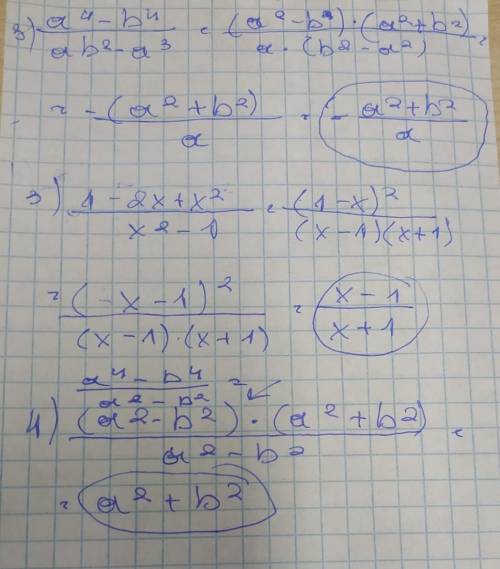 3) (a⁴ - b⁴)/(ab² - a³) = ((a² - b²) · (a² + b²))/(a · (b² - a²)) =
= -(a² + b²)/a = - (a² + b²)/a
3) (1 - 2x + x²)/(x² - 1) = (1 - x)²/((x - 1)(x + 1))
= (-x - 1)²/((x - 1) · (x + 1)) = (x - 1)/(x + 1)
(a⁴ - b⁴)/(a² - b²) =
4) ((a² - b²) · (a² + b²))/(a² - b²) =
= a² + b²